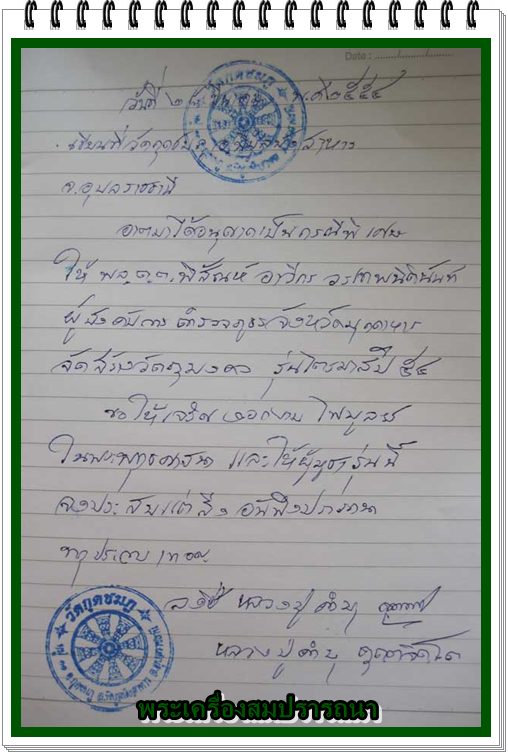 Date : ......../......../........
วันที่ ๒๕ พ.ศ ๒๕๕๔
เขียนที่วัดกุดชมภู อ.พิบูลมังสาหาร
จ.อุบลราชธานี
อาตมาได้อนุญาตเป็นกรณีพิเศษ
ให้ พล.ต.ต. พิสัณห์ อาวีกร วรเทพนิตินันท์
ผู้บังคับการ ตำรวจภูธร จังหวัดมุกดาหาร
จัดสร้างวัตถุมงคล รุ่นไตรมาสปี ๕๔
ขอให้เจริญ งอกงาม ไพบูลย์
ในพระพุทธศาสนา และให้ผู้บูชารุ่นนี้
จงประสบแต่สิ่งอันพึงปรารถนา
ทุกประการ เทอญ
ลงชื่อ หลวงปู่คำบุ
หลวงปู่คำบุ คุตฺตจิตฺโต
วัดกุดชมภู
พระเครื่องสมปรารถนา